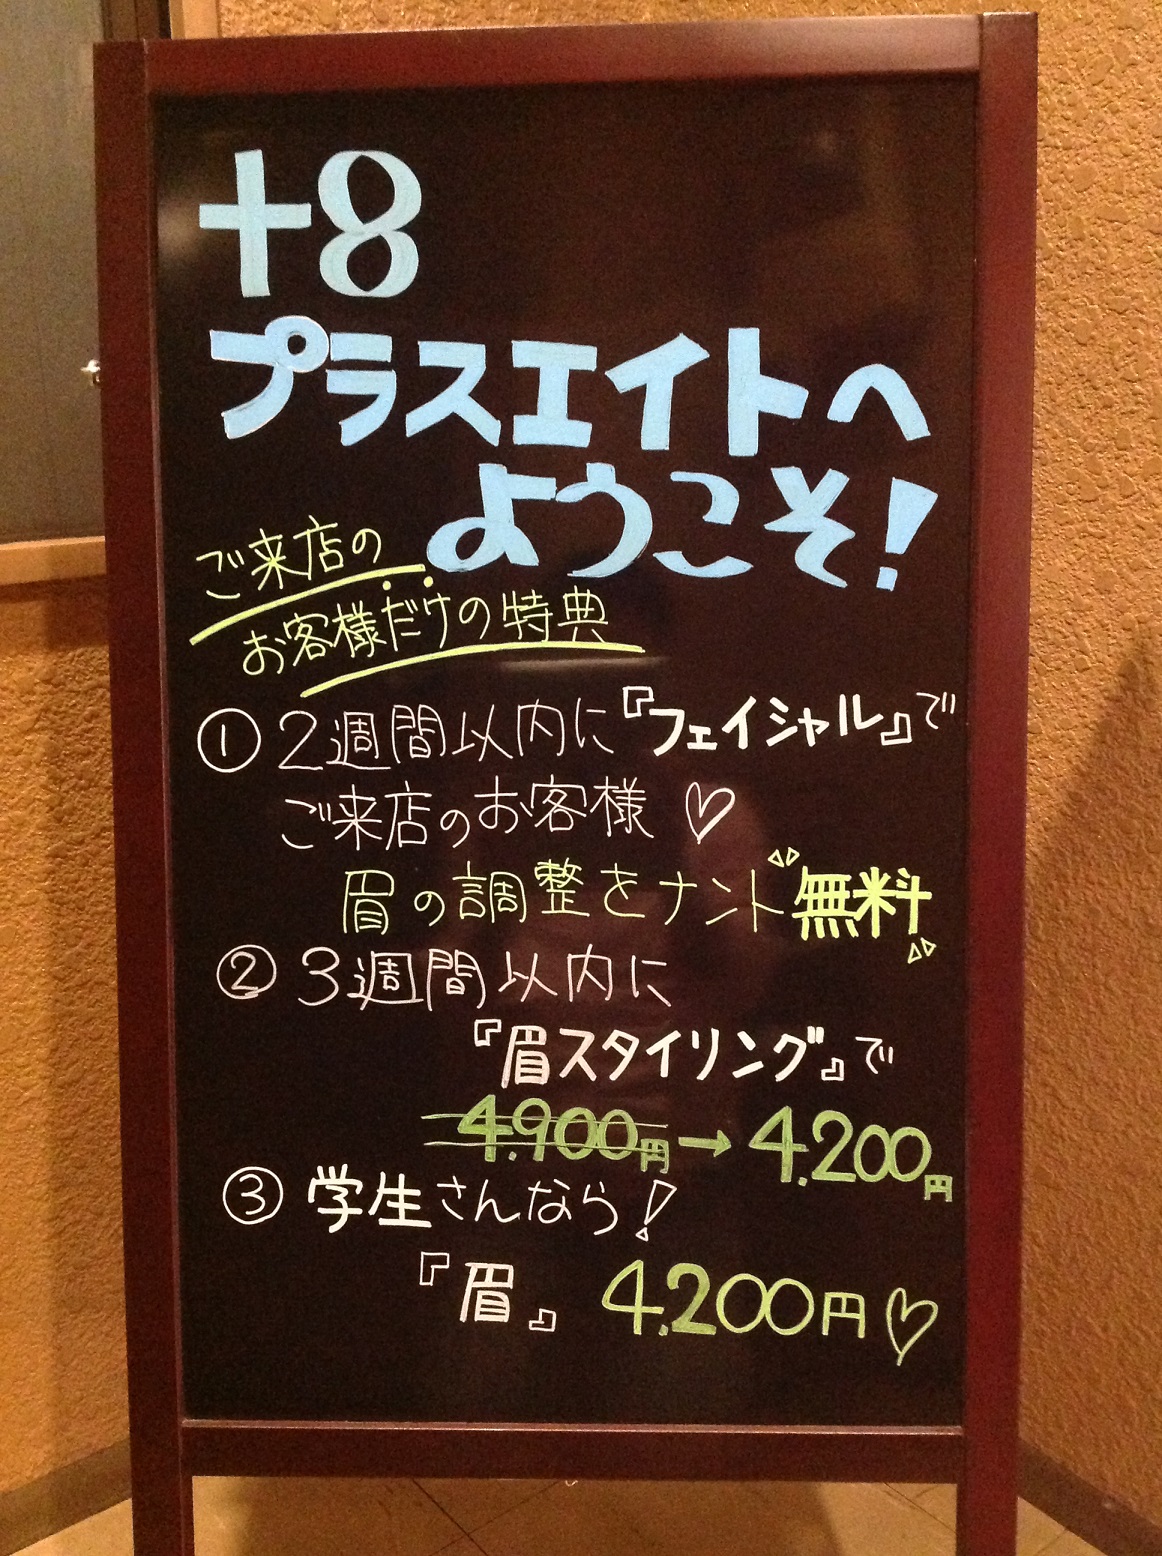 +8
プラスエイトへ
ようこそ!
ご来店の
お客様だけの特典
① 2週間以内に『フェイシャル』で
ご来店のお客様♡
眉の調整をナント無料
② 3週間以内に
『眉スタイリング』で
4.900円→4.200円
③ 学生さんなら!
『眉』 4.200円♡